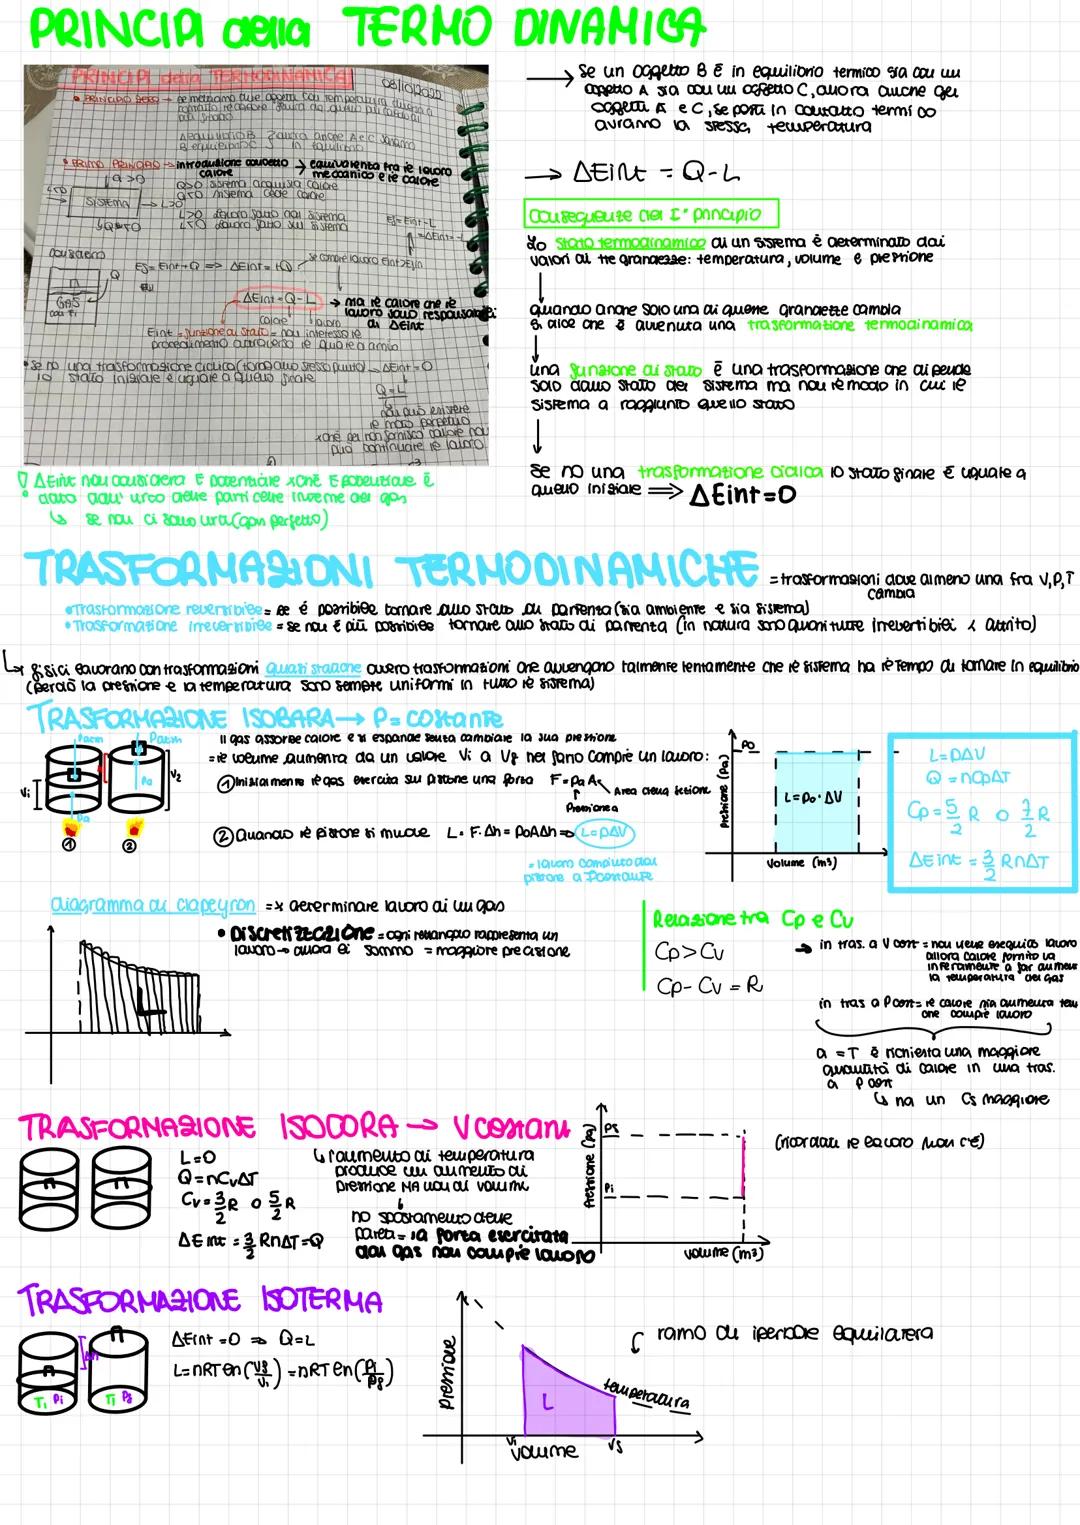 PRINCIPI della TERMO DINAMICA
PRINCIPI della TERMODINAMICA
08/10/2022
• PRINCIPIO ZERO →
• PRIMO PRINCIPIO → introduzione concetto → equivalenza fra il lavoro
calore meccanico e il calore
Q>0
Q>0 sistema acquista calore
Q<0 sistema cede calore
SISTEMA → L>0
L>0 lavoro fatto dal sistema
L<0 lavoro fatto sul sistema
Q
GAS
ΔEint = Q-L → ma il calore che il
lavoro sono responsabili
di ΔEint
calore lavoro
Eint = funzione di stato = non interessa il
procedimento attraverso il quale ci arrivo
• se ho una trasformazione ciclica (torna allo stesso punto) → ΔEint = 0
lo stato iniziale è uguale a quello finale
Q=L
non può esistere
il moto perpetuo
xché se non fornisco calore non
può continuare il lavoro
→ Se un oggetto B È in equilibrio termico sia con un
oggetto A sia con un oggetto C, allora anche gli
oggetti A e C, se posti in contatto termico
avranno la stessa temperatura
→ ΔEint = Q-L
Conseguenze del I° principio
Lo stato termodinamico di un sistema è determinato dai
valori di tre grandezze: temperatura, volume e pressione
quando anche solo una di queste grandezze cambia
si dice che è avvenuta una trasformazione termodinamica
una funzione di stato è una trasformazione che dipende
solo dallo stato del sistema ma non il modo in cui il
sistema a raggiunto quello stato
Se ho una trasformazione ciclica lo stato finale è uguale a
quello iniziale ⟹ ΔEint=0
ΔEint non considera E potenziale xché E potenziale è
data dall' urto delle particelle interne del gas
↳ se non ci sono urti (gas perfetto)
TRASFORMAZIONI TERMODINAMICHE = trasformazioni dove almeno una fra V,P,T
cambia
•Trasformazione reversibile = se é possibile tornare allo stato di partenza (sia ambiente e sia sistema)
•Trasformazione irreversibile = se non é più possibile tornare allo stato di partenza (in natura sono quasi tutte irreversibili x attrito)
↳ fisici lavorano con trasformazioni quasi statiche ovvero trasformazioni che avvengono talmente lentamente che il sistema ha il tempo di tornare in equilibrio
(perciò la pressione e la temperatura sono sempre uniformi in tutto il sistema)
TRASFORMAZIONE ISOBARA → P= costante
Il gas assorbe calore e si espande senza cambiare la sua pressione
= il volume aumenta da un valore Vi a Vf nel farlo compie un lavoro:
① Inizialmente il gas esercita sul pistone una forza F = Pa A
Area della sezione
Pressione
② Quando il pistone si muove L = F·Δh = PoAΔh ⇒ L=PΔV
= lavoro compiuto dal
pistone a P costante
Patm
Patm
Vi
Pa
Pa
V2
①
②
Pressione (Pa)
Po
L=Po·ΔV
Volume (m³)
L=PΔV
Q = nCpΔT
Cp = 5/2 R o 7/2 R
ΔEint = 3/2 RnΔT
Diagramma di Clapeyron => determinare lavoro di un gas
• Discretizzazione = ogni rettangolo rappresenta un
lavoro → allora li sommo = maggiore precisione
L
Relazione tra Cp e Cv
Cp>Cv
Cp- Cv = R
→ in tras. a V cost = non viene eseguito lavoro
allora calore fornito va
interamente a far aumentare
la temperatura del gas
in tras a P cost = il calore sia aumenta tem
che compie lavoro
a =T è richiesta una maggiore
quantità di calore in una tras.
a P cost
↳ ha un Cs maggiore
TRASFORMAZIONE ISOCORA → V costante
L=0
Q=nCvΔT
Cv = 3/2 R o 5/2 R
ΔEint = 3/2 RnΔT=Q
↳ l'aumento di temperatura
produce un aumento di
pressione MA non di volume
no spostamento delle
pareti = la forza esercitata
dal gas non compie lavoro
Pressione (Pa)
Pf
Pi
Volume (m³)
(ricordati il lavoro non c'è)
TRASFORMAZIONE ISOTERMA
ΔEint =0 ⇒ Q=L
L=nRT ln (Vf/Vi) = nRT ln (Pi/Pf)
Δh
Ti Pi
Ti Pf
Pressione
L
temperatura
Vi
Vf
Volume
ramo di iperbole equilatera